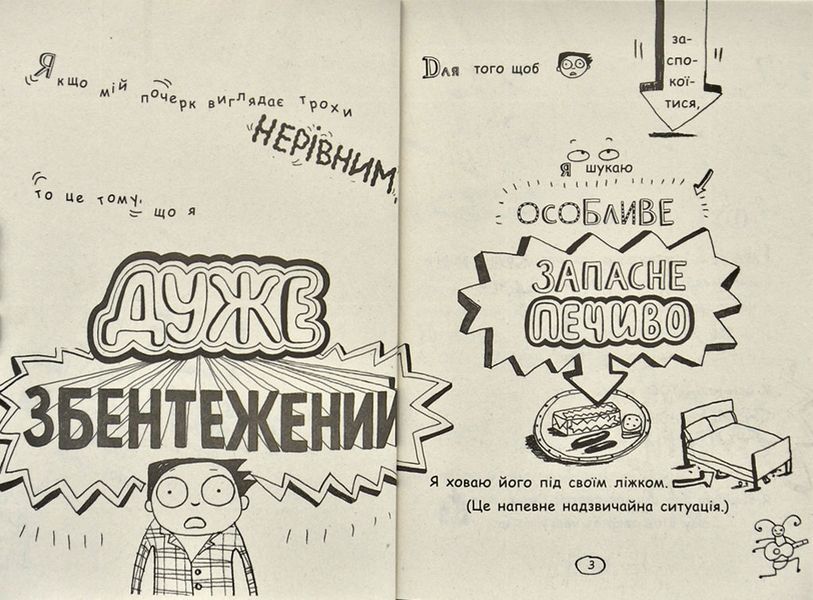 Якщо мій почерк виглядає трохи
НЕРІВНИМ,
то це тому, що я
ДУЖЕ
ЗБЕНТЕЖЕНИЙ
Для того щоб
за-
спо-
кої-
тися,
я шукаю
ОСОБЛИВЕ
ЗАПАСНЕ
ПЕЧИВО
Я ховаю його під своїм ліжком.
(Це напевне надзвичайна ситуація.)
3